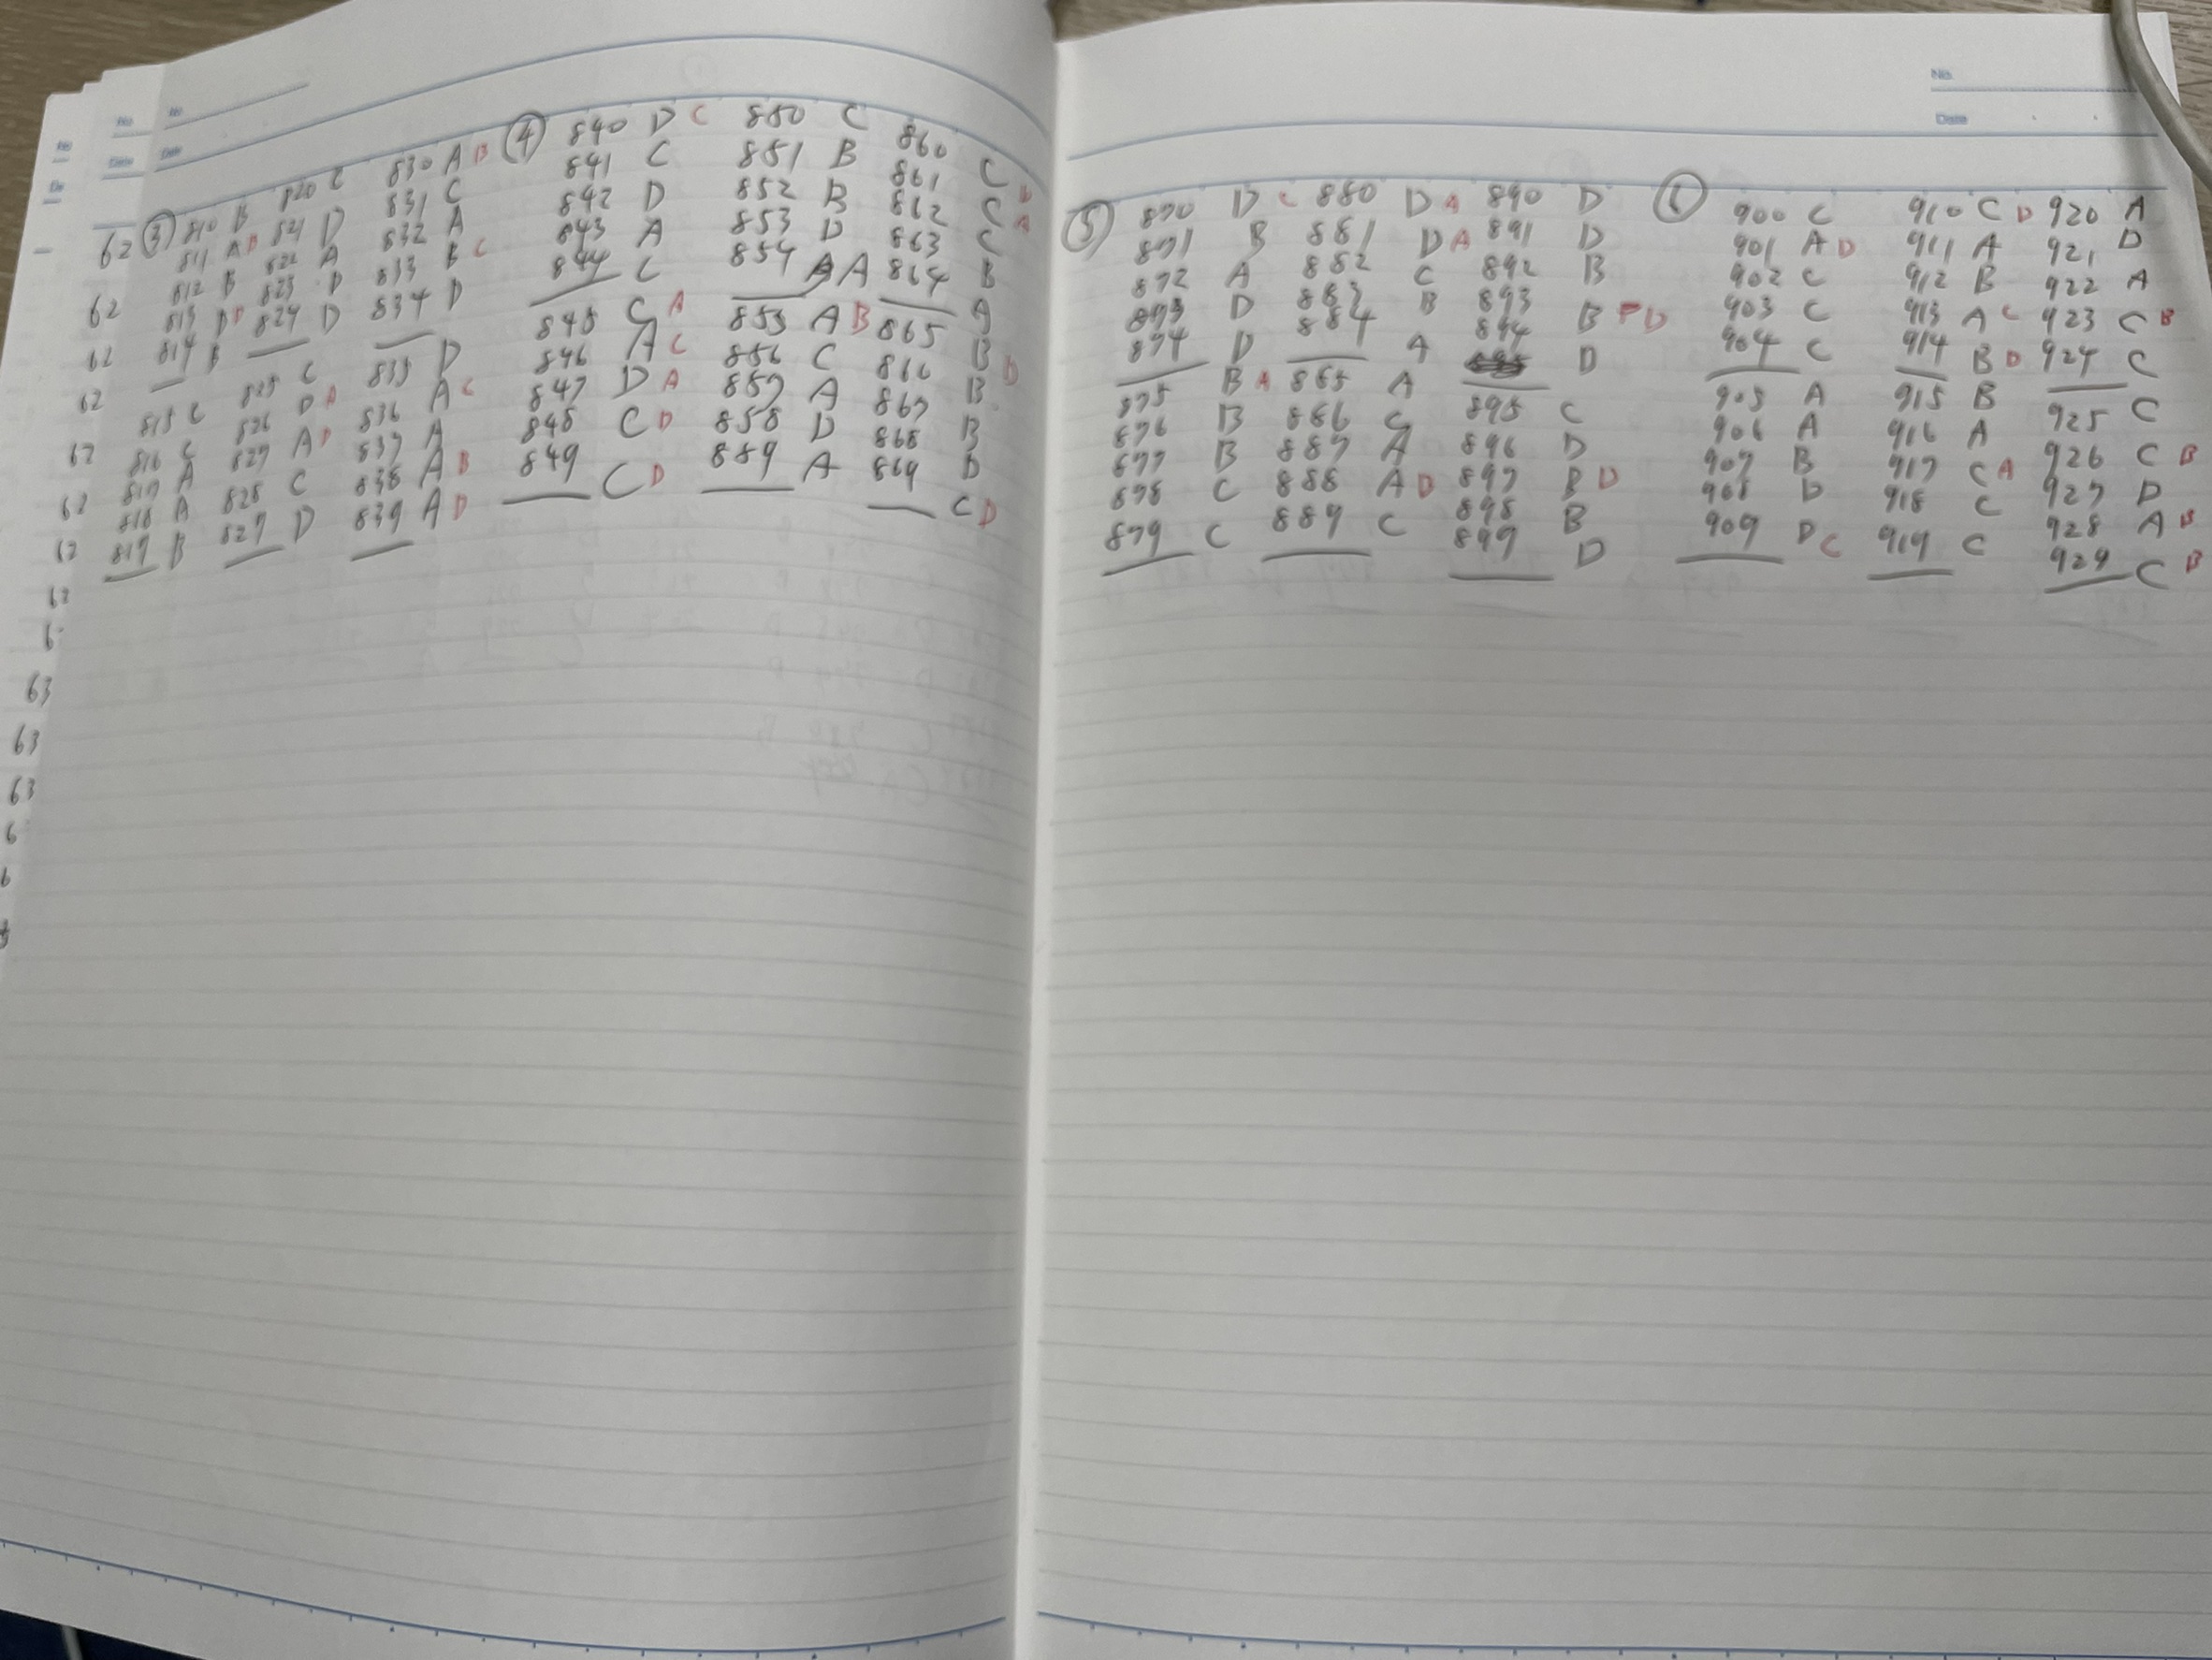 No.
Date
③
810 B
811 A D
812 B
813 D D
814 B
815 C
816 C
817 A
818 A
819 B
820 C
821 D
822 A
823 D
824 D
825 C
826 D A
827 A D
828 C
829 D
830 A B
831 C
832 A
833 B C
834 D
835 D
836 A C
837 A
838 A B
839 A D
④
840 D C
841 C
842 D
843 A
844 C
845 C A
846 A C
847 D A
848 C D
849 C D
850 C
851 B
852 B
853 D
854 A
855 A B
856 C
857 A
858 D
859 A
860 C
861 C
862 C A
863 B
864 A
865 B D
866 B
867 B
868 D
869 C D
No.
Date
⑤
870 D C
871 B
872 A
873 D
874 D
875 B A
876 B
877 B
878 C
879 C
880 D A
881 D A
882 C
883 B
884 A
885 A
886 C
887 A
888 A D
889 C
890 D
891 D
892 B
893 B D
894 D
895 C
896 D
897 B D
898 B
899 D
⑥
900 C
901 A D
902 C
903 C
904 C
905 A
906 A
907 B
908 D
909 D C
910 C D
911 A
912 B
913 A C
914 B D
915 B
916 A
917 C A
918 C
919 C
920 A
921 D
922 A
923 C B
924 C
925 C
926 C B
927 D
928 A B
929 C B
62
62
62
62
62
62
62
62
63
63
63